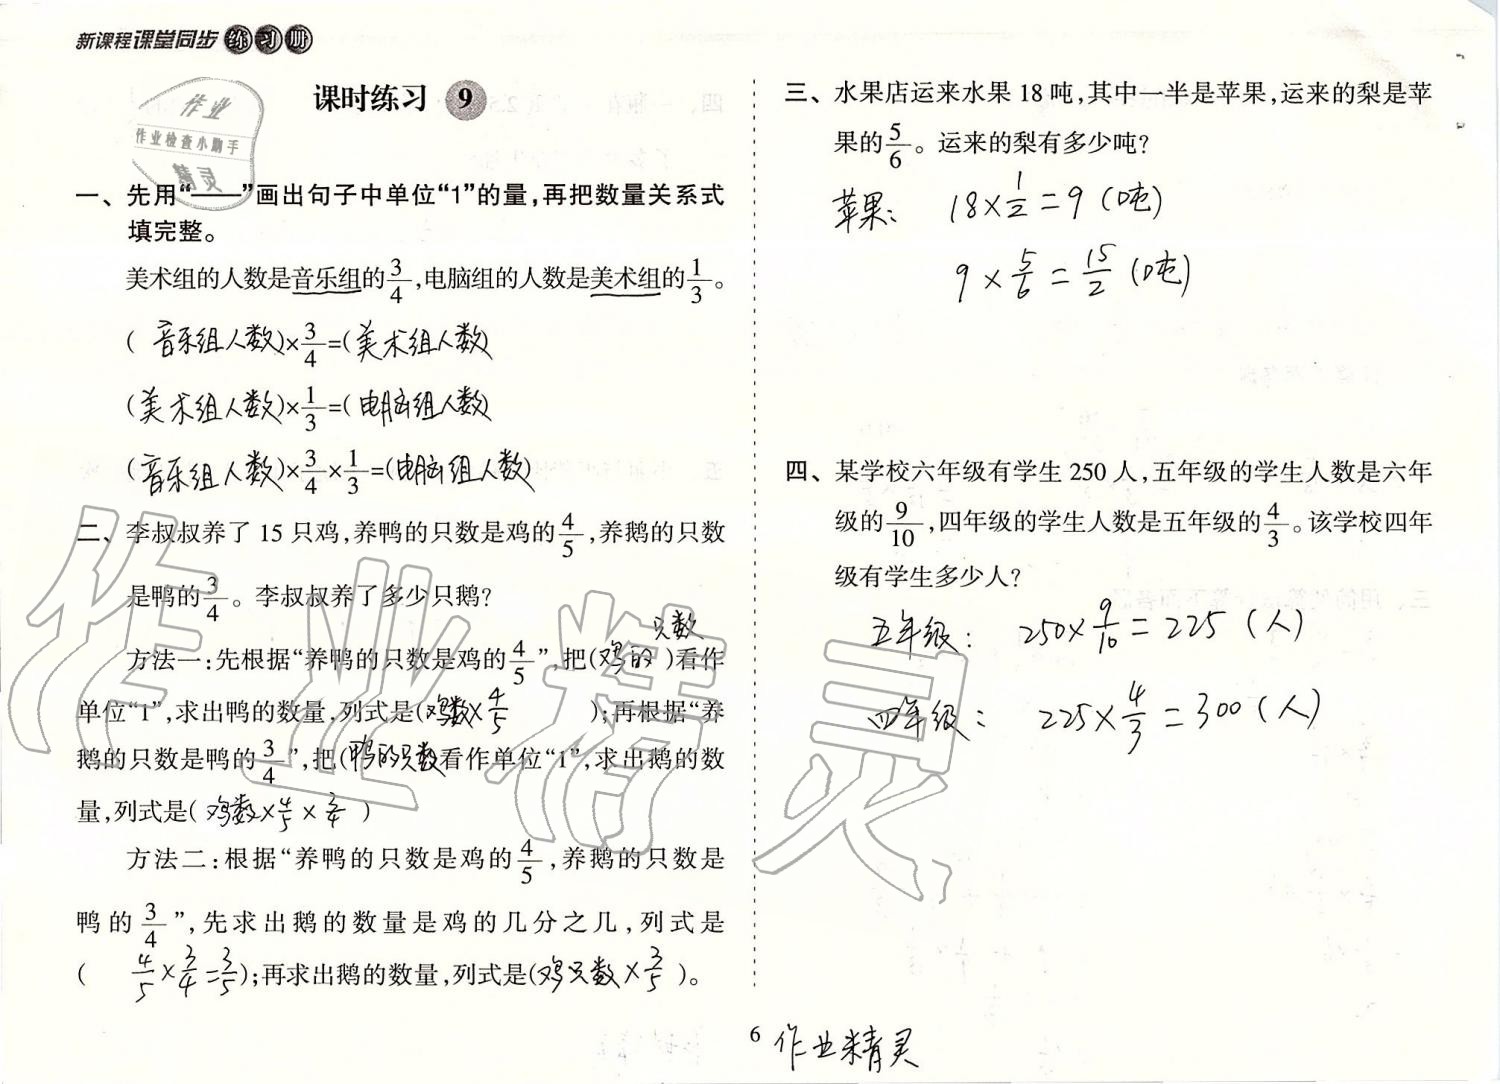 新课程课堂同步练习册
课时练习 9
作业
作业检查小助手
精灵
一、先用“——”画出句子中单位“1”的量,再把数量关系式
填完整。
美术组的人数是音乐组的3/4,电脑组的人数是美术组的1/3。
(音乐组人数)×3/4=(美术组人数)
(美术组人数)×1/3=(电脑组人数)
(音乐组人数)×3/4×1/3=(电脑组人数)
二、李叔叔养了 15 只鸡,养鸭的只数是鸡的4/5,养鹅的只数
是鸭的3/4。李叔叔养了多少只鹅?
方法一:先根据“养鸭的只数是鸡的4/5”,把(鸡的只数)看作
单位“1”,求出鸭的数量,列式是(鸡数×4/5);再根据“养
鹅的只数是鸭的3/4”,把(鸭的只数看作单位“1”,求出鹅的数
量,列式是(鸡数×4/5×3/4)
方法二:根据“养鸭的只数是鸡的4/5,养鹅的只数是
鸭的3/4”,先求出鹅的数量是鸡的几分之几,列式是
(4/5×3/4=3/5);再求出鹅的数量,列式是(鸡只数×3/5)。
三、水果店运来水果 18 吨,其中一半是苹果,运来的梨是苹
果的5/6。运来的梨有多少吨?
苹果: 18×1/2=9(吨)
9×5/6=15/2(吨)
四、某学校六年级有学生 250 人,五年级的学生人数是六年
级的9/10,四年级的学生人数是五年级的4/3。该学校四年
级有学生多少人?
五年级: 250×9/10=225(人)
四年级: 225×4/3=300(人)
作业精灵
6
作业精灵